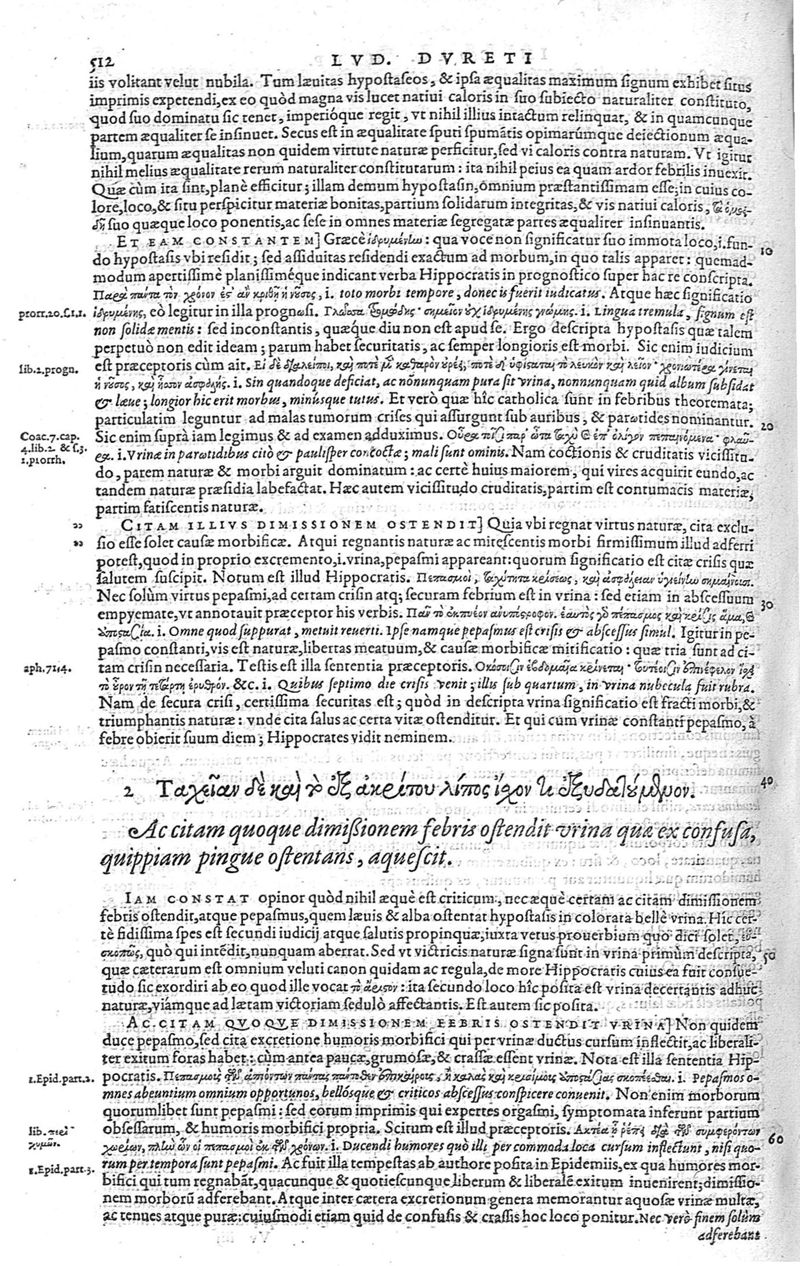 512 LVD. DVRETI
iis volitant velut nubila. Tum læuitas hypostaseos, & ipsa æqualitas maximum signum exhibet situs
imprimis expetendi, ex eo quòd magna vis lucet natiui caloris in suo subiecto naturaliter constituto,
quod suo dominatu sic tenet, imperióque regit, vt nihil illius intactum relinquat, & in quamcunque
partem æqualiter se insinuet. Secus est in æqualitate sputi spumãtis opimarúmque deiectionum æqua-
lium, quarum æqualitas non quidem virtute naturæ perficitur, sed vi caloris contra naturam. Vt igitur
nihil melius æqualitate rerum naturaliter constitutarum: ita nihil peius ea quam ardor febrilis inuexit.
Quæ cùm ita sint, planè efficitur; illam demum hypostasin, omnium præstantissimam esse; in cuius co-
lore, loco, & situ perspicitur materiæ bonitas, partium solidarum integritas, & vis natiui caloris,
suo quæque loco ponentis, ac sese in omnes materiæ segregatæ partes æqualiter insinuantis.
ET EAM CONSTANTEM] Græcè ἱδρυμένην: qua voce non significatur suo immota loco, i. fun-
do hypostasis vbi residit; sed assiduitas residendi exactum ad morbum, in quo talis apparet: quemad-
modum apertissimè planissiméque indicant verba Hippocratis in prognostico super hac re conscripta.
Παρὰ πάντα τὸν χρόνον ἐς ἂν κριθῇ ἡ νῦσος, i. toto morbi tempore, donec is fuerit iudicatus. Atque hæc significatio
prorr. 20. C. 1. 1. ἱδρυμένης, eò legitur in illa prognωsi. Γλῶσσα τρομώδης σημεῖον οὐχ ἱδρυμένης γνώμης. i. Lingua tremula, signum est
non solidæ mentis: sed inconstantis, quæque diu non est apud se. Ergo descripta hypostasis quæ talem
perpetuò non edit ideam; parum habet securitatis, ac semper longioris est morbi. Sic enim iudicium
lib. 2. progn. est præceptoris cùm ait. Εἰ δὲ διαλείποι, καὶ ποτὲ μὲν καθαρὸν οὐρέει, ποτὲ δὲ ὑφίσταται τὸ λευκὸν καὶ λεῖον· χρονιωτέρη γίνεται
ἡ νῦσος, καὶ ἧσσον ἀσφαλής. i. Sin quandoque deficiat, ac nonnunquam pura sit vrina, nonnunquam quid album subsidat
& læue; longior hic erit morbus, minúsque tutus. Et verò quæ hîc catholica sunt in febribus theoremata;
particulatim leguntur ad malas tumorum crises qui assurgunt sub auribus, & parωtides nominantur.
Coac. 7. cap. Sic enim suprà iam legimus & ad examen adduximus. πεπαινόμενα φλαῦ-
4. lib. 2. & f. 3. ρα. i. Vrinæ in parωtidibus citò & paulisper concoctæ; mali sunt ominis. Nam coctionis & cruditatis vicissitu-
1. prorrh. do, parem naturæ & morbi arguit dominatum: ac certè huius maiorem, qui vires acquirit eundo, ac
tandem naturæ præsidia labefactat. Hæc autem vicissitudo cruditatis, partim est contumacis materiæ,
partim fatiscentis naturæ.
CITAM ILLIVS DIMISSIONEM OSTENDIT] Quia vbi regnat virtus naturæ, cita exclu-
sio esse solet causæ morbificæ. Atqui regnantis naturæ ac mitescentis morbi firmissimum illud adferri
potest, quod in proprio excremento, i. vrina, pepasmi appareant: quorum significatio est citæ crisis quæ
salutem suscipit. Notum est illud Hippocratis. Πεπασμοὶ, ταχύτητα κρίσεως, καὶ ἀσφάλειαν ὑγιεινὴν σημαίνουσι.
Nec solùm virtus pepasmi, ad certam crisin atq; securam febrium est in vrina: sed etiam in abscessuum
empyemate, vt annotauit præceptor his verbis. Πᾶν τὸ ἐκπυέον ἀνυπόστροφον. ἑαυτὸς γὰρ πέπασμος καὶ κρίσις ἅμα, καὶ
ἀπόστασις. i. Omne quod suppurat, metuit reuerti. Ipse namque pepasmus est crisis & abscessus simul. Igitur in pe-
pasmo constanti, vis est naturæ, libertas meatuum, & causæ morbificæ mitificatio: quæ tria sunt ad ci-
aph. 71. 4. tam crisin necessaria. Testis est illa sententia præceptoris. Ὁκόσοισιν ἑβδομαῖα κρίνεται· τουτέοισιν ἐπινέφελον ἴσχει
τὸ οὖρον τῇ τετάρτῃ ἐρυθρόν. &c. i. Quibus septimo die crisis venit; illis sub quartum, in vrina nubecula fuit rubra.
Nam de secura crisi, certissima securitas est; quòd in descripta vrina significatio est fracti morbi, &
triumphantis naturæ: vnde cita salus ac certa vitæ ostenditur. Et qui cum vrinæ constanti pepasmo, à
febre obierit suum diem; Hippocrates vidit neminem.
2 Ταχεῖαν δὲ καὶ τὸ ἐξ ἀκρίτου λίπος ἴσχον τι ἐξυδατούμενον.
Ac citam quoque dimißionem febris ostendit vrina quæ ex confusa,
quippiam pingue ostentans, aquescit.
IAM CONSTAT opinor quòd nihil æquè est criticum, nec æquè certam ac citam dimissionem
febris ostendit, atque pepasmus, quem læuis & alba ostentat hypostasis in colorata bellè vrina. Hîc cer-
tè fidissima spes est secundi iudicij atque salutis propinquæ; iuxta vetus prouerbium quo dici solet, εὔ-
σκοπῶς, quò qui intẽdit, nunquam aberrat. Sed vt victricis naturæ signa sunt in vrina primùm descripta,
quæ cæterarum est omnium veluti canon quidam ac regula, de more Hippocratis cuius ea fuit consue-
tudo sic exordiri ab eo quod ille vocat τὸ ἄριστον: ita secundo loco hîc posita est vrina decertantis adhuc
naturæ, viámque ad lætam victoriam sedulò affectantis. Est autem sic posita.
AC CITAM QVOQVE DIMISSIONEM FEBRIS OSTENDIT VRINA] Non quidem
duce pepasmo, sed cita excretione humoris morbifici qui per vrinæ ductus cursum inflectit, ac liberali-
ter exitum foras habet: cùm antea paucæ, grumosæ, & crassæ essent vrinæ. Nota est illa sententia Hip-
1. Epid. part. 2. pocratis. Πεπασμοὺς τῶν ἀπιόντων πάντας πάντοθεν ἐπικαίρους, ἢ καλὰς καὶ κρισίμους ἀποστασίας σκοπέεσθαι. i. Pepasmos o-
mnes abeuntium omnium opportunos, bellósque & criticos abscessus conspicere conuenit. Non enim morborum
quorumlibet sunt pepasmi: sed eorum imprimis qui expertes orgasmi, symptomata inferunt partium
lib. περὶ obsessarum, & humoris morbifici propria. Scitum est illud præceptoris. Ἀκτέα ᾗ ῥέπῃ διὰ τῶν συμφερόντων
χυμῶν. χωρίων, πλὴν ὧν οἱ πεπασμοὶ ἐκ τῶν χρόνων. i. Ducendi humores quò illi per commoda loca cursum inflectunt, nisi quo-
1. Epid. part. 3. rum per tempora sunt pepasmi. Ac fuit illa tempestas ab authore posita in Epidemiis, ex qua humores mor-
bifici qui tum regnabãt, quacunque & quotiescunque liberum & liberalẽ exitum inuenirent; dimissio-
nem morborũ adferebant. Atque inter cætera excretionum genera memorantur aquosæ vrinæ multæ,
ac tenues atque puræ: cuiusmodi etiam quid de confusis & crassis hoc loco ponitur. Nec verò finem solùm
adferebant
10
20
30
40
50
60